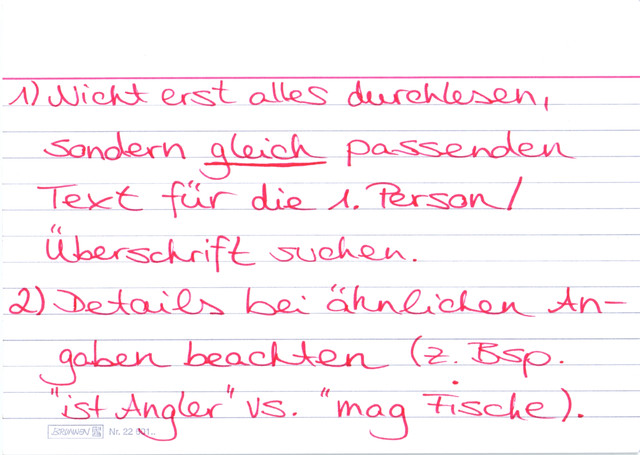 1) Nicht erst alles durchlesen,
sondern gleich passenden
Text für die 1. Person/
Überschrift suchen.
2) Details bei ähnlichen An-
gaben beachten (z. Bsp.
"ist Angler" vs. "mag Fische").
BRUNNEN Nr. 22 601